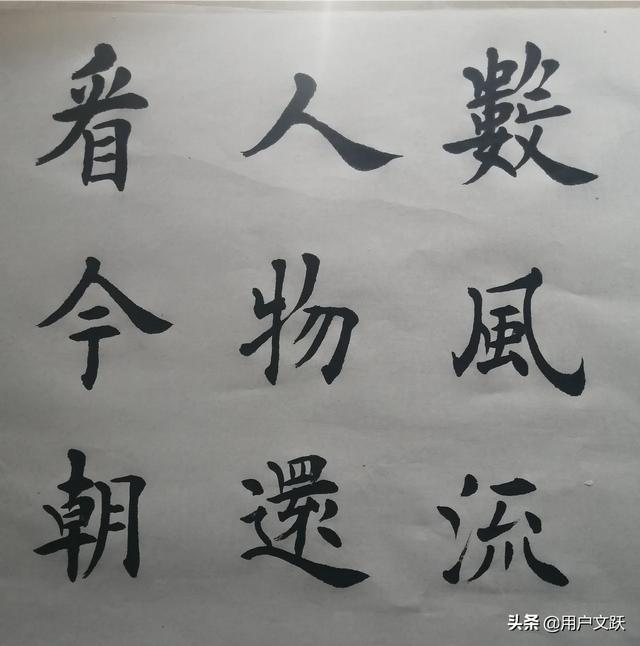 數風流
人物還
看今朝
头条 @用户文跃